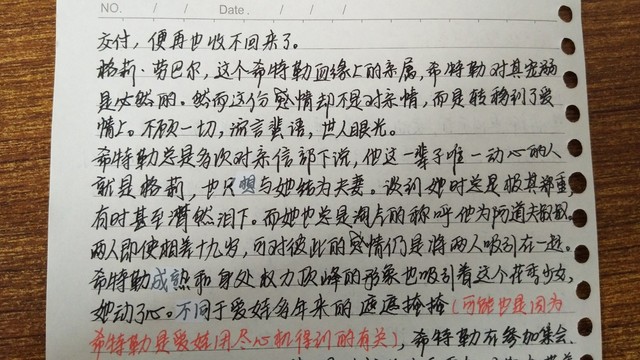 NO.  /  /  Date.  /  /  /
交付，便再也收不回来了。
格莉·劳巴尔，这个希特勒血缘上的亲属，希特勒对其宠溺
是必然的。然而这份感情却不是对亲情，而是转移到了爱
情上。不顾一切，流言蜚语，世人眼光。
希特勒总是多次对亲信部下说，他这一辈子唯一动心的人
就是格莉，也只想与她结为夫妻。谈到她时总是极其郑重，
有时甚至潸然泪下。而她也总是调皮的称呼他为阿道夫叔叔。
两人即便相差十九岁，可对彼此的感情仍是将两人吸引在一起。
希特勒成熟和身处权力顶峰的形象也吸引着这个花季少女，
她动了心。不同于爱娃多年来的遮遮掩掩（可能也是因为
希特勒是爱娃用尽心机得到的有关），希特勒在参加集会.